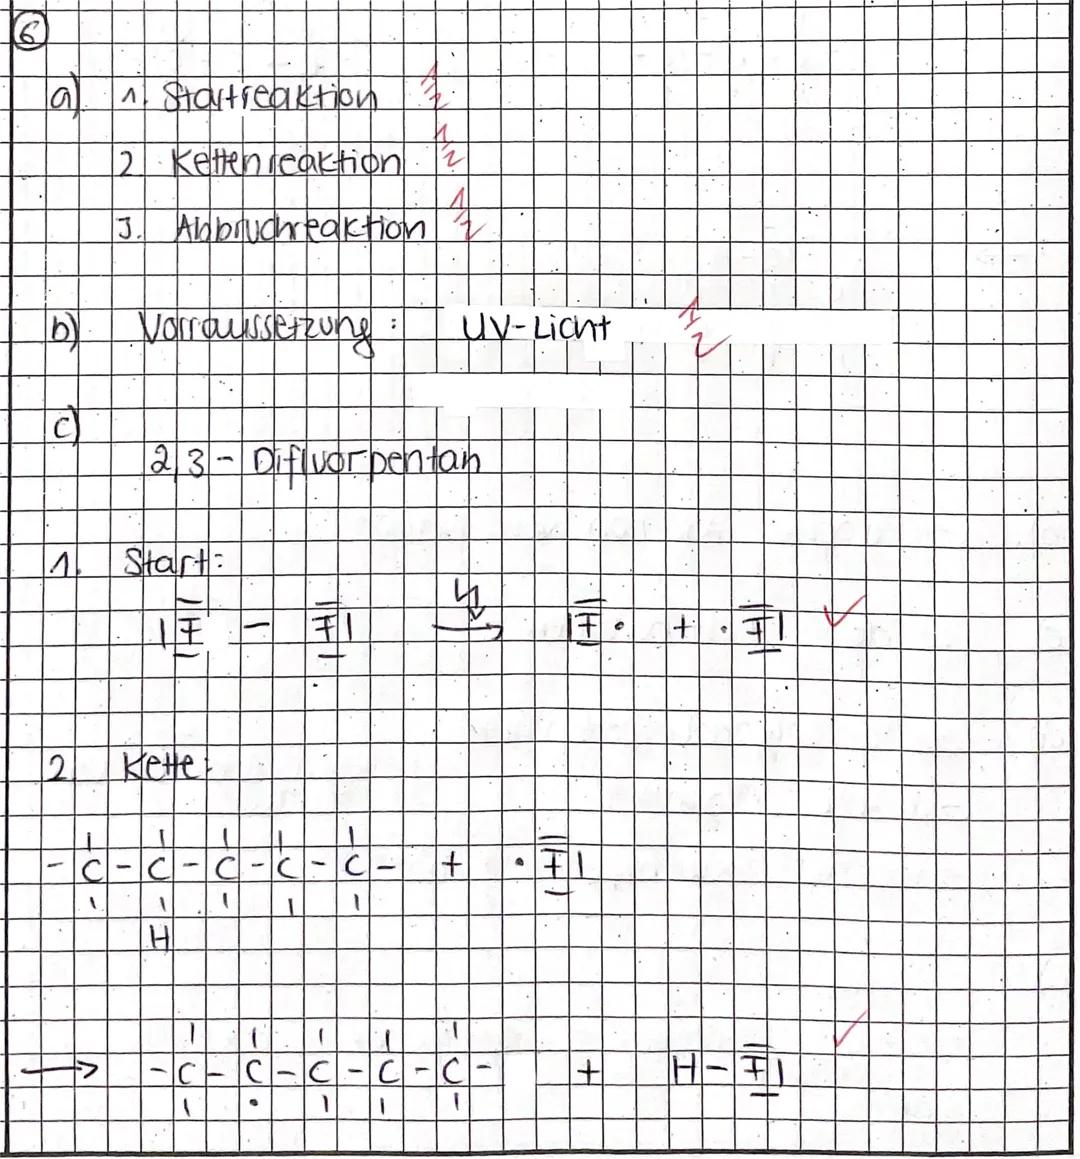 6
a) 1. Startreaktion 1/2
2. Kettenreaktion 1/2
3. Abbruchreaktion 1/2
b) Vorraussetzung : UV-Licht 1/2
c)
2,3 - Difluorpentan
1. Start:
|F - F| → |F· + ·F| ✓
2. Kette:
-C-C-C-C-C- + ·F|
H
→ -C-C-C-C-C- + H-F| ✓